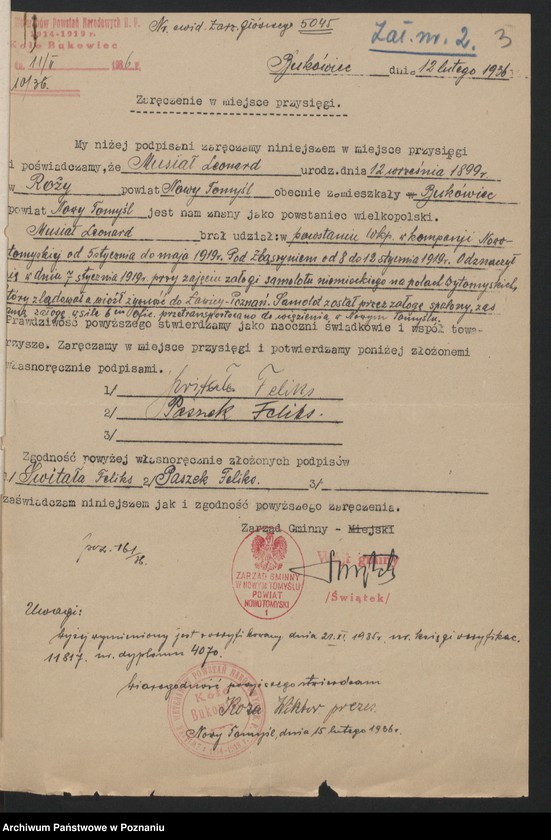 Nr. ewid. Zarz. Głównego 5045
Zał. nr. 2. 3
Powstań Narodowych R. P.
1914-1919 r.
Koło Bukowiec
da 11/V 1936 r.
10/36.
Bukówiec dnia 12 lutego 1936
Zaręczenie w miejsce przysięgi.
My niżej podpisani zaręczamy niniejszem w miejsce przysięgi
i poświadczamy, że Musiał Leonard urodz.dnia 12 września 1899 r.
w Róży powiat Nowy Tomyśl obecnie zamieszkały w Bukówiec
powiat Nowy Tomyśl jest nam znany jako powstaniec wielkopolski.
Musiał Leonard brał udział: w powstaniu Wkp. w kompanji Nowo-
tomyskiej od 5 stycznia do maja 1919 r. Pod Zbąszyniem od 8 do 12 stycznia 1919 r. Odznaczył
się w dniu 7 stycznia 1919 r. przy zajęciu załogi samolotu niemieckiego na polach Bytomyskich,
który zlądował a wiózł żywość do Ławicy-Poznań. Samolot został przez załogę spalony, zaś
załogę w sile 6 przetransportowano do więzienia w Nowym Tomyślu.
Prawdziwość powyższego stwierdzamy jako naoczni świadkowie i współ towa-
rzysze. Zaręczamy w miejsce przysięgi i potwierdzamy poniżej złożonemi
własnoręcznie podpisami.
1/ Feliks
2/ Paszek Feliks.
3/
Zgodność powyżej własnoręcznie złożonych podpisów
1/ Świtała Feliks 2/ Paszek Feliks. 3/
zaświadczam niniejszem jak i zgodność powyższego zaręczenia.
Zarząd Gminny - Miejski
Wójt gminy
/Świątek/
ZARZĄD GMINNY
W NOWYM TOMYŚLU
POWIAT
NOWOTOMYSKI
1
Uwagi:
Wyżej wymieniony jest zweryfikowany dnia 21. XI. 1935 r. nr. księgi weryfikac.
11817. nr. dyplomu 4070.
Wiarogodność powyższego stwierdzam
Koło
Koza Wiktor prezes.
Nowy Tomyśl, dnia 15 lutego 1936 r.
Archiwum Państwowe w Poznaniu